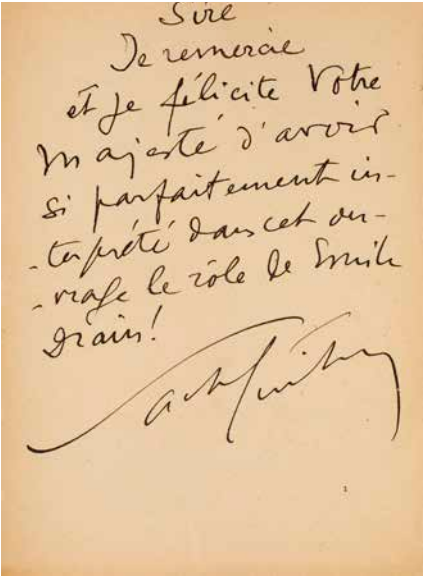 Sire
Je remercie
et je félicite Votre
Majesté d'avoir
si parfaitement in-
-terprété dans cet ou-
-vrage le rôle de Emile
Drain!
Sacha Guitry
1